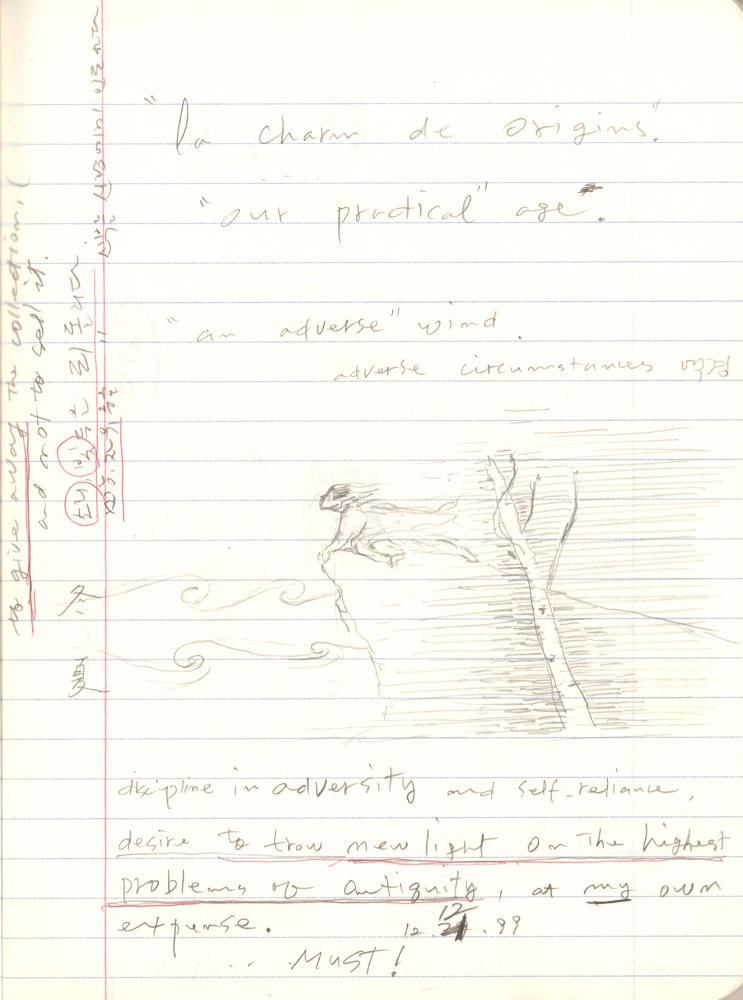 "la charm de origins".
"our practical" age".
"an adverse" wind.
adverse circumstances 역경
discipline in adversity and self-reliance,
desire to trow new light on the highest
problems of antiquity, at my own
expense. 12.12.99
... Must!
to give away the collection, (
and not to sell it.
冬
夏